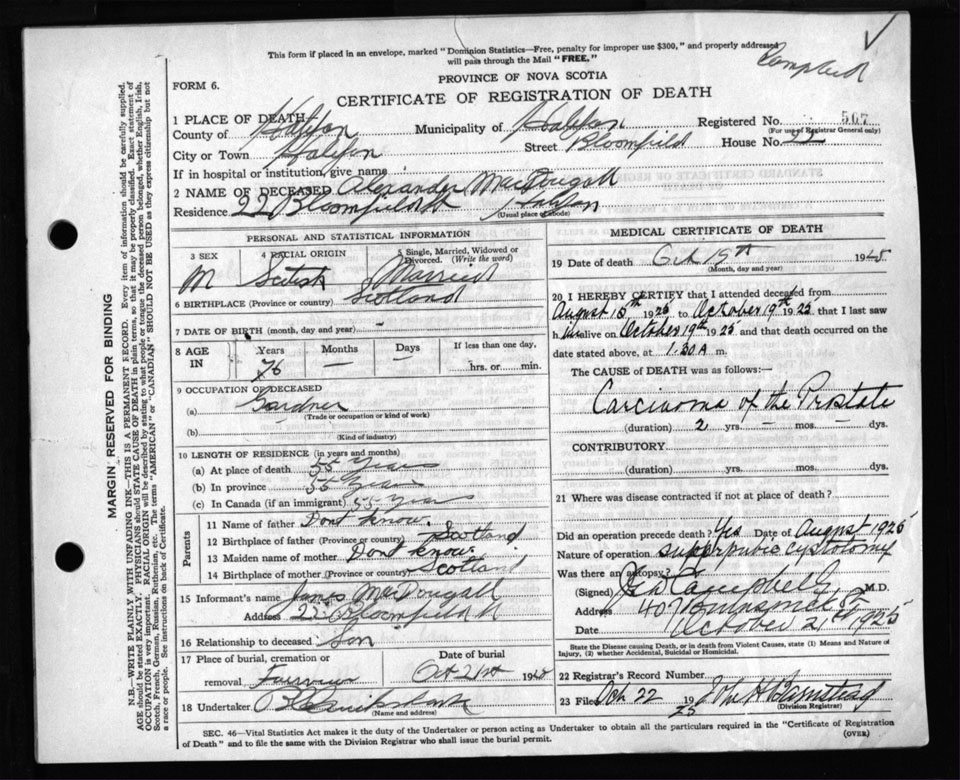 This form if placed in an envelope, marked "Dominion Statistics—Free, penalty for improper use $300," and properly addressed
will pass through the Mail "FREE."
Campbell
PROVINCE OF NOVA SCOTIA
FORM 6.
CERTIFICATE OF REGISTRATION OF DEATH
1 PLACE OF DEATH
County of Halifax Municipality of Halifax Registered No. 567
(For use of Registrar General only)
City or Town Halifax Street Bloomfield House No. 22
If in hospital or institution, give name
2 NAME OF DECEASED Alexander MacDougall
Residence 22 Bloomfield St Halifax
(Usual place of abode)
PERSONAL AND STATISTICAL INFORMATION
3 SEX 4 RACIAL ORIGIN 5 Single, Married, Widowed or
Divorced. (Write the word)
M Scotish Married
6 BIRTHPLACE (Province or country) Scotland
7 DATE OF BIRTH (month, day and year) -
8 AGE IN Years Months Days If less than one day,
76 — — hrs. or min.
9 OCCUPATION OF DECEASED
(a) Gardner
(Trade or occupation or kind of work)
(b)
(Kind of industry)
10 LENGTH OF RESIDENCE (in years and months)
(a) At place of death 55 Years
(b) In province 55 Years
(c) In Canada (if an immigrant) 55 Years
Parents
11 Name of father Dont know.
12 Birthplace of father (Province or country) Scotland
13 Maiden name of mother Dont know.
14 Birthplace of mother (Province or country) Scotland
15 Informant's name James MacDougall
Address 22 Bloomfield St
16 Relationship to deceased Son
17 Place of burial, cremation or Date of burial
removal Fairview Oct 21st 1925
18 Undertaker
(Name and address)
MEDICAL CERTIFICATE OF DEATH
19 Date of death Oct 19th 1925
(Month, day and year)
20 I HEREBY CERTIFY that I attended deceased from
August 15th 1925 to October 19th 1925, that I last saw
him alive on October 19th 1925 and that death occurred on the
date stated above, at 1.30 A m.
The CAUSE of DEATH was as follows:—
Carcinoma of the Prostate
(duration) 2 yrs — mos. — dys.
CONTRIBUTORY
(duration) yrs. mos. dys.
21 Where was disease contracted if not at place of death?
Did an operation precede death? Yes Date of August 1925
Nature of operation suprapubic cystotomy
Was there an autopsy?
(Signed) Campbell M.D.
Address 407
Date October 21st 1925
State the Disease causing Death, or in Death from Violent Causes, state (1) Means and Nature of
Injury, (2) whether Accidental, Suicidal or Homicidal.
22 Registrar's Record Number
23 Filed Oct 22 1925 John H Barnstead
(Division Registrar)
SEC. 46—Vital Statistics Act makes it the duty of the Undertaker or person acting as Undertaker to obtain all the particulars required in the "Certificate of Registration
of Death" and to file the same with the Division Registrar who shall issue the burial permit. (OVER)
MARGIN RESERVED FOR BINDING
N.B.—WRITE PLAINLY WITH UNFADING INK—THIS IS A PERMANENT RECORD. Every item of information should be carefully supplied.
AGE should be stated EXACTLY. PHYSICIANS should STATE CAUSE OF DEATH in plain terms, so that it may be properly classified. Exact statement of
OCCUPATION is very important. RACIAL ORIGIN will be described by stating to what people or tongue the deceased person belonged, whether English, Irish,
Scotch, French, German, Russian, Ruthenian, etc. The terms "AMERICAN" or "CANADIAN" SHOULD NOT BE USED as they express citizenship but not
a race or people. See instructions on back of Certificate.